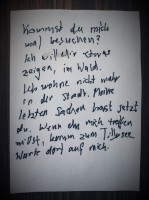 Kommst du mich
mal besuchen?
Ich will dir etwas
zeigen, im Wald.
Ich wohne nicht mehr
in der Stadt. Meine
letzten Sachen hast jetzt
du. Wenn du mich treffen
willst, komm zum
Warte dort auf mich.